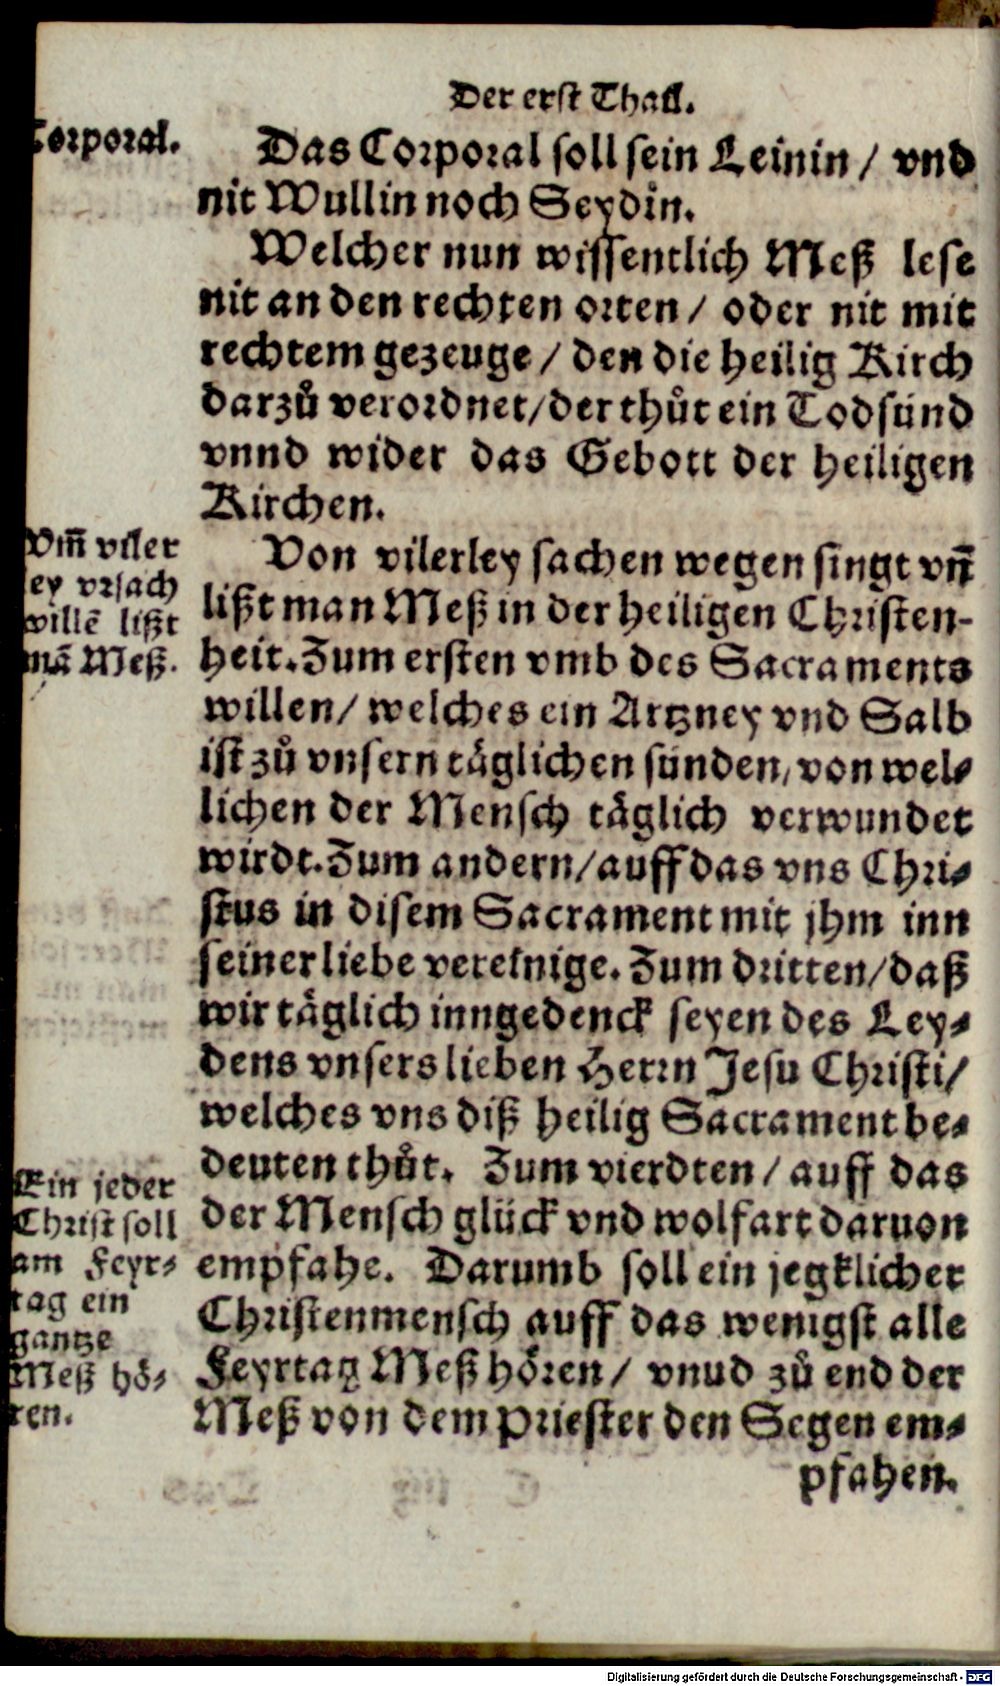 Der erst Thail.
Corporal.
Das Corporal soll sein Leinin / vnd
nit Wullin noch Seydin.
Welcher nun wissentlich Meß lese
nit an den rechten orten / oder nit mit
rechtem gezeuge / den die heilig Kirch
darzů verordnet / der thůt ein Todsünd
vnnd wider das Gebott der heiligen
Kirchen.
Vm̃ viler
ley vrsach
willẽ lißt
mã Meß.
Von vilerley sachen wegen singt vñ
lißt man Meß in der heiligen Christen-
heit. Zum ersten vmb des Sacraments
willen / welches ein Artzney vnd Salb
ist zů vnsern täglichen sünden, von wel-
lichen der Mensch täglich verwundet
wirdt. Zum andern / auff das vns Chri-
stus in disem Sacrament mit jhm inn
seiner liebe vereinige. Zum dritten / daß
wir täglich inngedenck seyen des Ley-
dens vnsers lieben Herrn Jesu Christi /
welches vns diß heilig Sacrament be-
deuten thůt. Zum vierdten / auff das
der Mensch glück vnd wolfart daruon
empfahe. Darumb soll ein jegklicher
Christenmensch auff das wenigst alle
Feyrtag Meß hören / vnnd zů end der
Meß von dem Priester den Segen em-
pfahen.
Ein jeder
Christ soll
am Feyr-
tag ein
gantze
Meß hö-
ren.
Digitalisierung gefördert durch die Deutsche Forschungsgemeinschaft - DFG